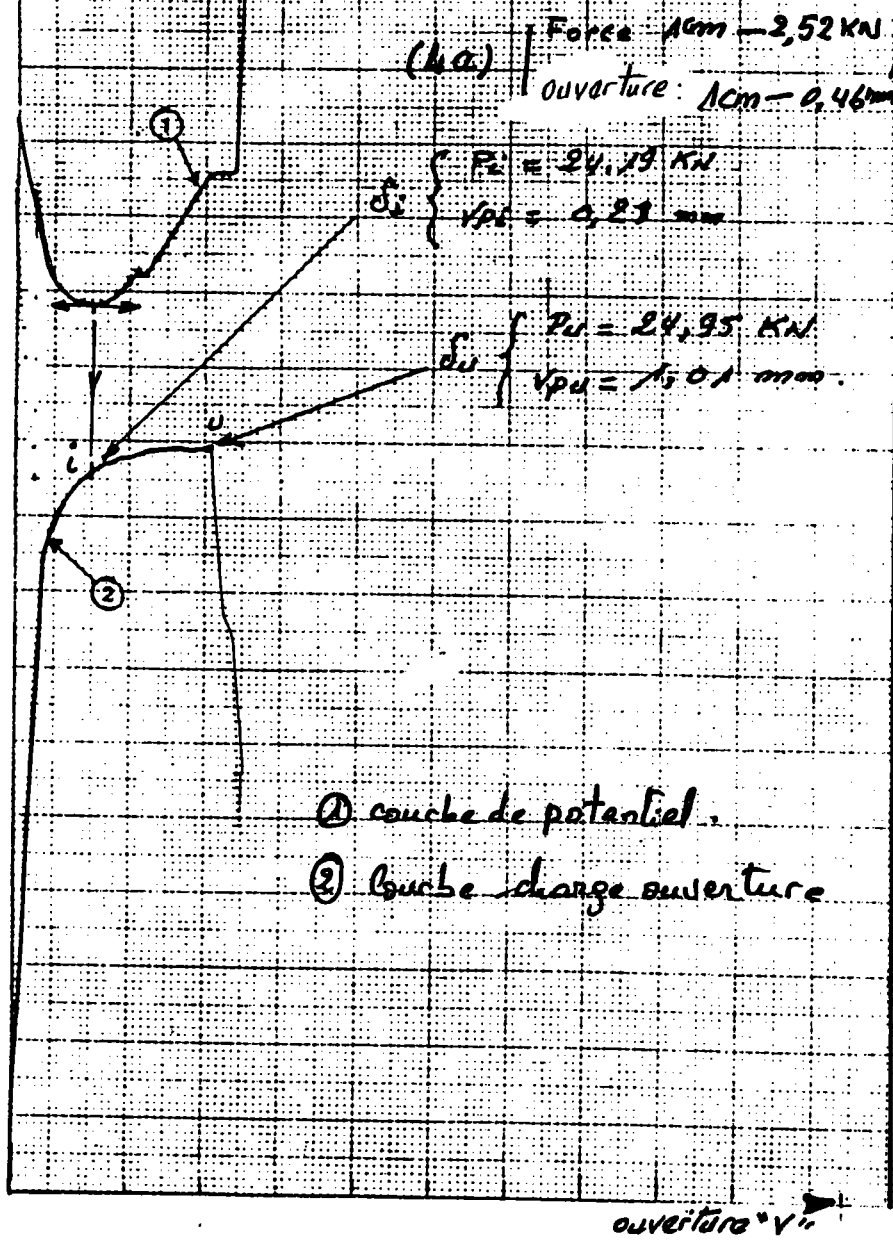 Force 1cm — 2,52 KN
(4a)
ouverture : 1cm — 0,46 mm
①
δi { Pi = 24,19 KN
Vpi = 0,21 mm
δu { Pu = 24,95 KN
Vpu = 1,01 mm.
u
i
②
① courbe de potentiel.
② Courbe charge ouverture
ouverture "V"